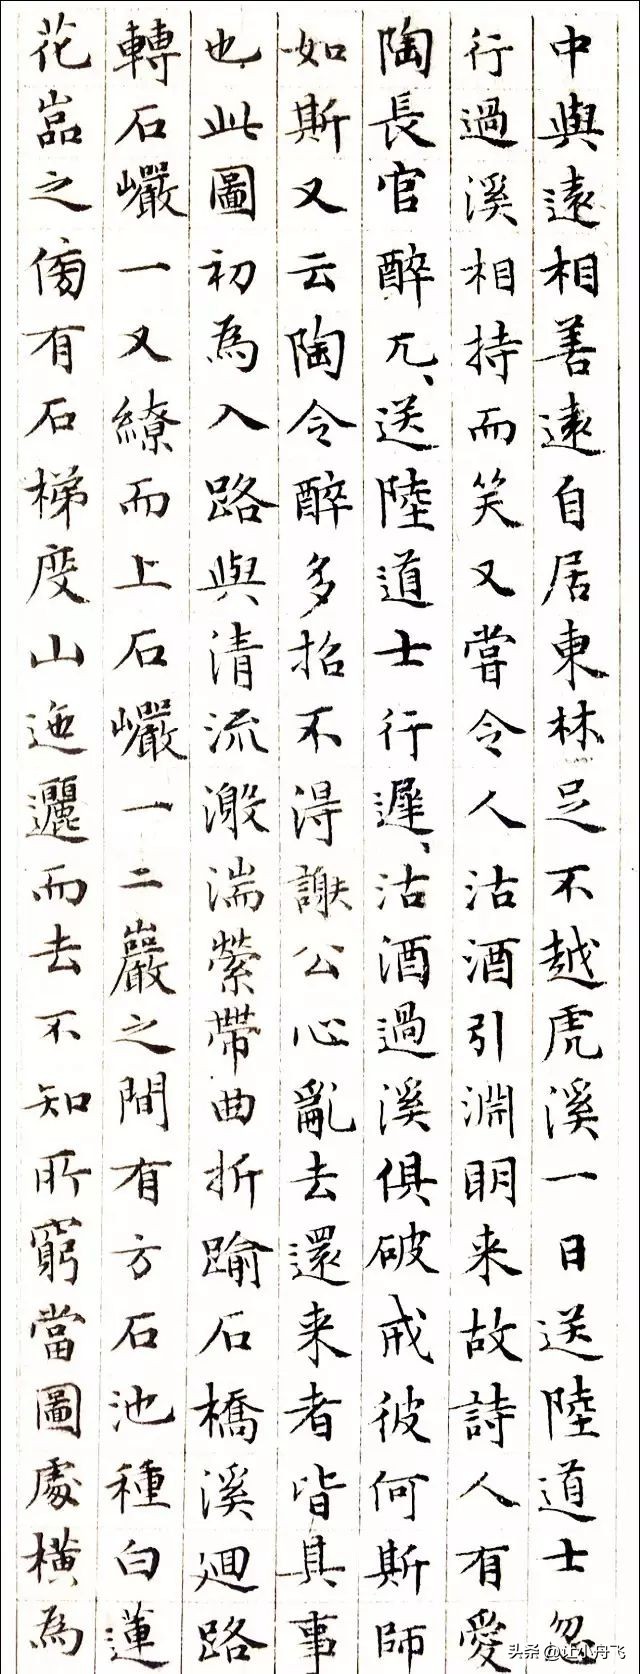 中與遠相善遠自居東林足不越虎溪一日送陸道士忽
行過溪相持而笑又嘗令人沽酒引淵明来故詩人有愛
陶長官醉兀、送陸道士行遲、沽酒過溪俱破戒彼何斯師
如斯又云陶令醉多招不得謝公心亂去還来者皆其事
也此圖初為入路與清流激湍縈帶曲折踰石橋溪迴路
轉石巖一又繚而上石巖一二巖之間有方石池種白蓮
花嵓之傍有石梯度山迤邐而去不知所窮當圖處橫為
头条 @让小舟飞